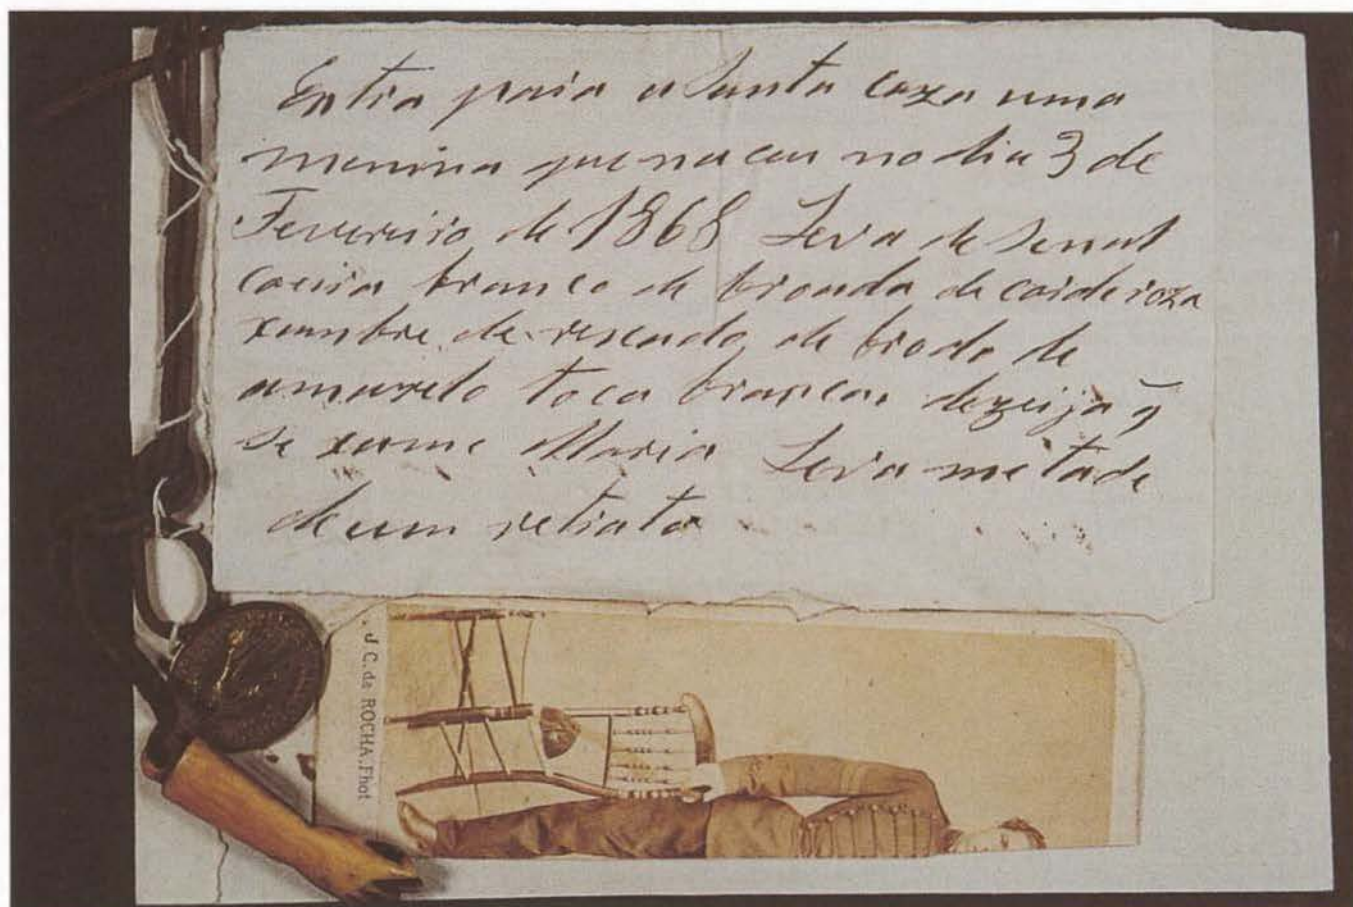 Entra para a Santa caza uma
menina que naceu no dia 3 de
Fevereiro de 1868 Leva de Senal
coeiro branco de broada de corderoza
xambre de rescado de brodo de
amarelo toca branca, dezeija q̃
se xame Maria Leva metade
de um retrato
J. C. da ROCHA, Phot